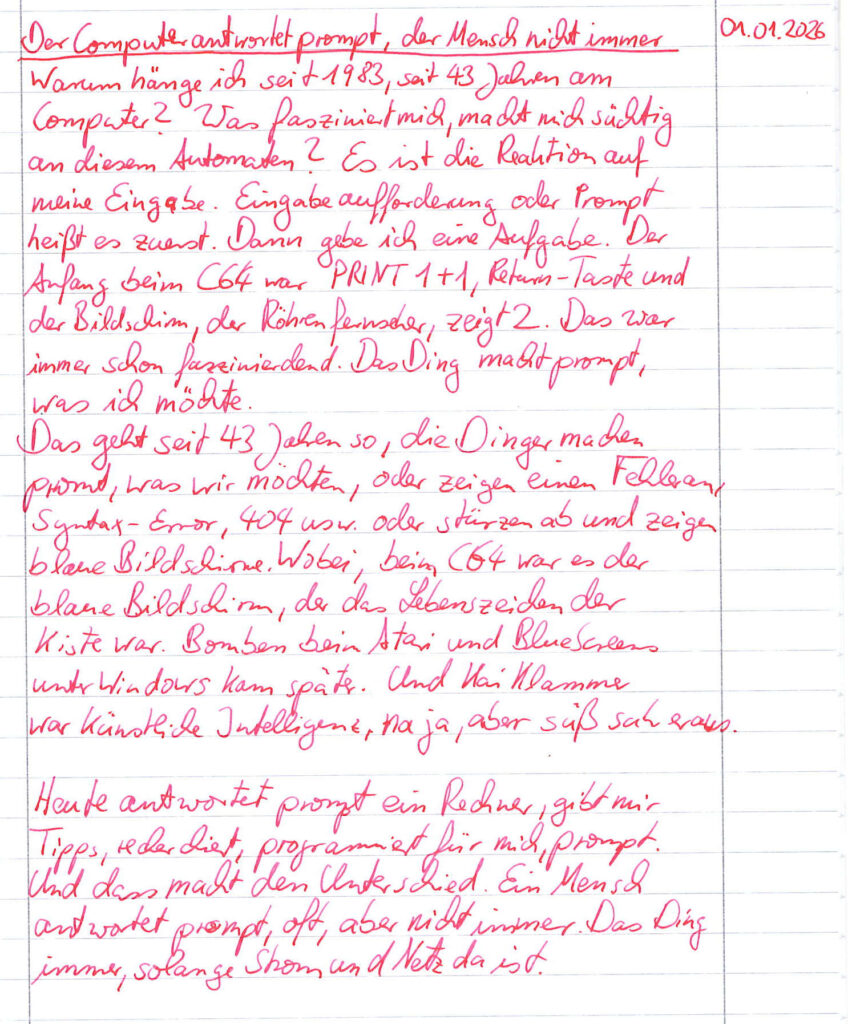 Der Computer antwortet prompt, der Mensch nicht immer
01.01.2026
Warum hänge ich seit 1983, seit 43 Jahren am
Computer? Was fasziniert mich, macht mich süchtig
an diesem Automaten? Es ist die Reaktion auf
meine Eingabe. Eingabeaufforderung oder Prompt
heißt es zuerst. Dann gebe ich eine Aufgabe. Der
Anfang beim C64 war PRINT 1+1, Return-Taste und
der Bildschirm, der Röhrenfernseher, zeigt 2. Das war
immer schon faszinierdend. Das Ding macht prompt,
was ich möchte.
Das geht seit 43 Jahren so, die Dinger machen
promt, was wir möchten, oder zeigen einen Fehler an,
Syntax-Error, 404 usw. oder stürzen ab und zeigen
blaue Bildschirme. Wobei, beim C64 war es der
blaue Bildschirm, der das Lebenszeichen der
Kiste war. Bomben beim Atari und BlueScreens
unter Windows kam später. Und Kai Klammer
war Künstliche Intelligenz, na ja, aber süß sah er aus.
Heute antwortet prompt ein Rechner, gibt mir
Tipps, recherchiert, programmiert für mich, prompt.
Und dass macht den Unterschied. Ein Mensch
antwortet prompt, oft, aber nicht immer. Das Ding
immer, solange Strom und Netz da ist.